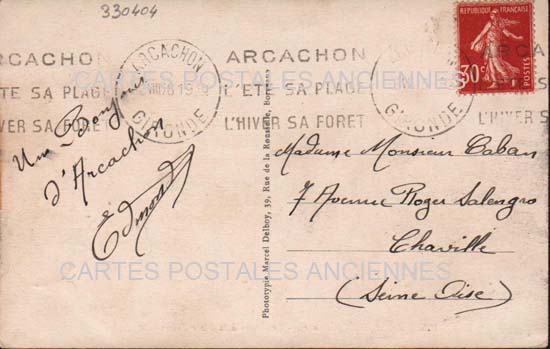 330404
RÉPUBLIQUE FRANÇAISE
30c
POSTES
ARCACHON
GIRONDE
ARCACHON
L'ÉTÉ SA PLAGE
L'HIVER SA FORET
ARCACHON
GIRONDE
Un Bonjour
d'Arcachon
Edmond
Phototypie Marcel Delboy, 39, Rue de la Rousselle, Bordeaux
Madame Monsieur Caban
7 Avenue Roger Salengro
Chaville
(Seine Oise)
CARTES POSTALES ANCIENNES
CARTES POSTALES ANCIENNES